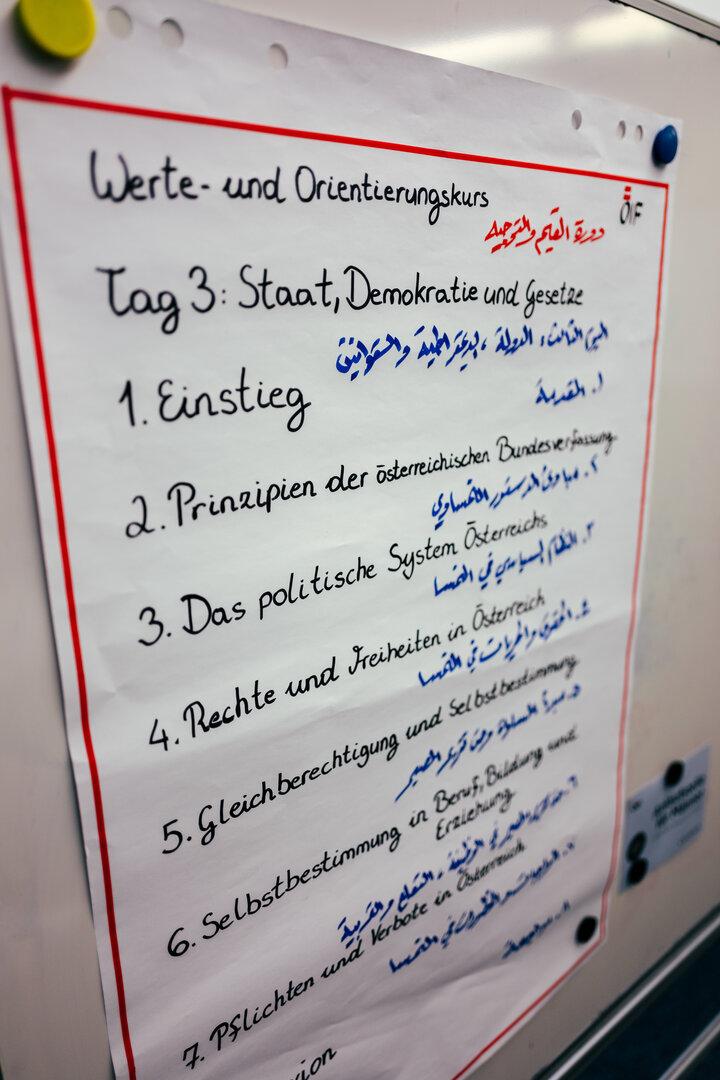 Werte- und Orientierungskurs
ÖIF
دورة القيم والتوجيه
Tag 3: Staat, Demokratie und Gesetze
1. Einstieg
١. المقدمة
2. Prinzipien der österreichischen Bundesverfassung
٢. مبادئ الدستور النمساوي
3. Das politische System Österreichs
٣. النظام السياسي في النمسا
4. Rechte und Freiheiten in Österreich
٤. الحقوق والحريات في النمسا
5. Gleichberechtigung und Selbstbestimmung
6. Selbstbestimmung in Beruf, Bildung und
Erziehung
7. Pflichten und Verbote in Österreich